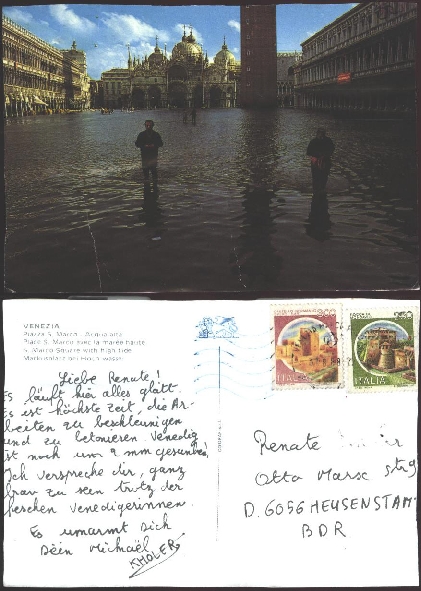 VENEZIA
Piazza S. Marco - Acqua alta
Place S. Marco avec la marée haute
S. Marco Square with high tide
Markusplatz bei Hochwasser
Liebe Renate!
Es läuft hier alles glatt
Es ist höchste Zeit, die Ar-
beiten zu beschleunigen
und zu betonieren. Venedig
ist noch um 2 mm gesunken
Ich verspreche dir, ganz
brav zu sein trotz der
feschen Venedigerinnen.
Es umarmt Dich
Dein Michaël
KHOLER
Renate
Otto Marx Strg
D. 6056 HEUSENSTAM
BDR
ITALIA
ITALIA